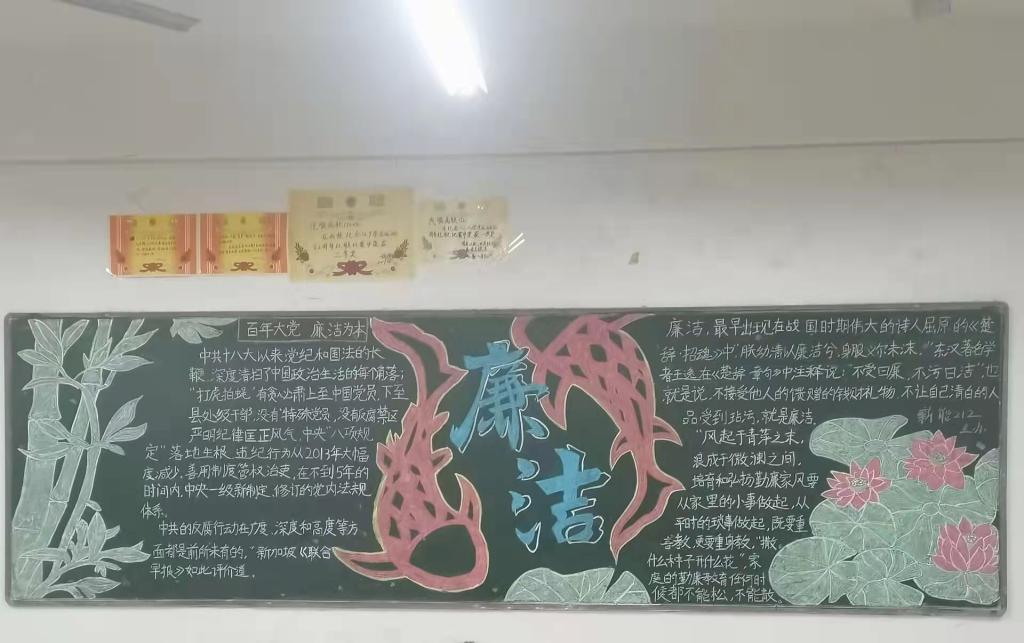 百年大党 廉洁为本
中共十八大以来党纪和国法的长
鞭，深度清扫了中国政治生活的每个角落；
"打虎拍蝇"有贪必肃上至中国党员，下至
县处级干部，没有"特殊党员，没有腐禁区
严明纪律匡正风气，中央"八项规
定"落地生根，违纪行为从2013年大幅
度减少，善用制度管权治吏，在不到5年的
时间内，中央一级新制定、修订的党内法规
体系。
中共的反腐行动在广度、深度和高度等方
面都是前所未有的，"新加坡《联合
早报》如此评价道。
廉
洁
廉洁，最早出现在战国时期伟大的诗人屈原的《楚
辞·招魂》中"朕幼清以廉洁兮，身服义尔未沫。"东汉著名学
者王逸在《楚辞·章句》中注释说："不受曰廉，不污曰洁"，也
就是说，不接受他人的馈赠的钱财礼物，不让自己清白的人
品受到玷污，就是廉洁。
"风起于青萍之末，
浪成于微澜之间，
培育和弘扬勤廉家风要
从家里的小事做起，从
平时的琐事做起，既要重
言教，更要重身教，"撒
什么种子开什么花"，家
庭的勤廉教育任何时
候都不能松，不能散。